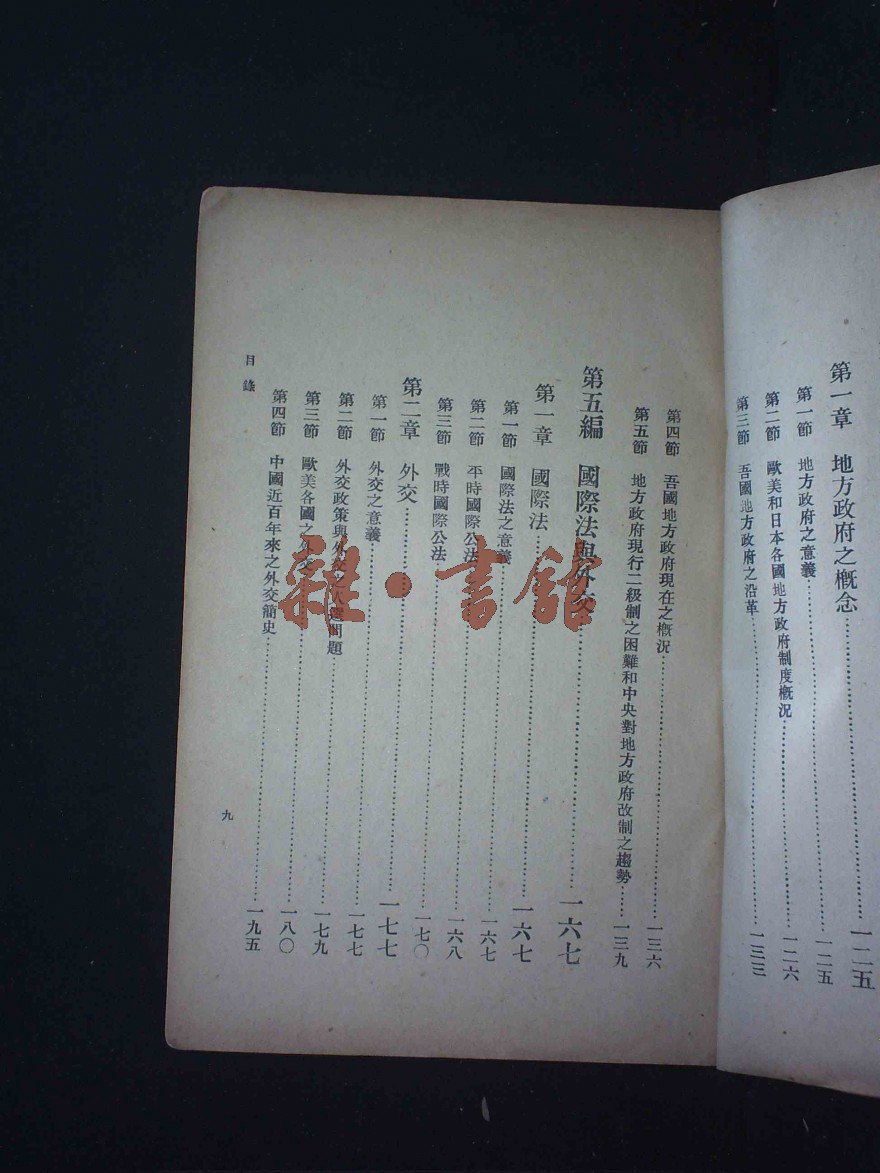 第一章 地方政府之概念……一二五
第一節 地方政府之意義……一二五
第二節 歐美和日本各國地方政府制度概況……一二六
第三節 吾國地方政府之沿革……一三三
第四節 吾國地方政府現在之概況……一三六
第五節 地方政府現行二級制之困難和中央對地方政府改制之趨勢……一三九
第五編 國際法與外交……一六七
第一章 國際法……一六七
第一節 國際法之意義……一六七
第二節 平時國際公法……一六八
第三節 戰時國際公法……一七〇
第二章 外交……一七七
第一節 外交之意義……一七七
第二節 外交政策與外交之人選問題……一七九
第三節 歐美各國之外交……一八〇
第四節 中國近百年來之外交簡史……一九五
目錄
九
雜·書館